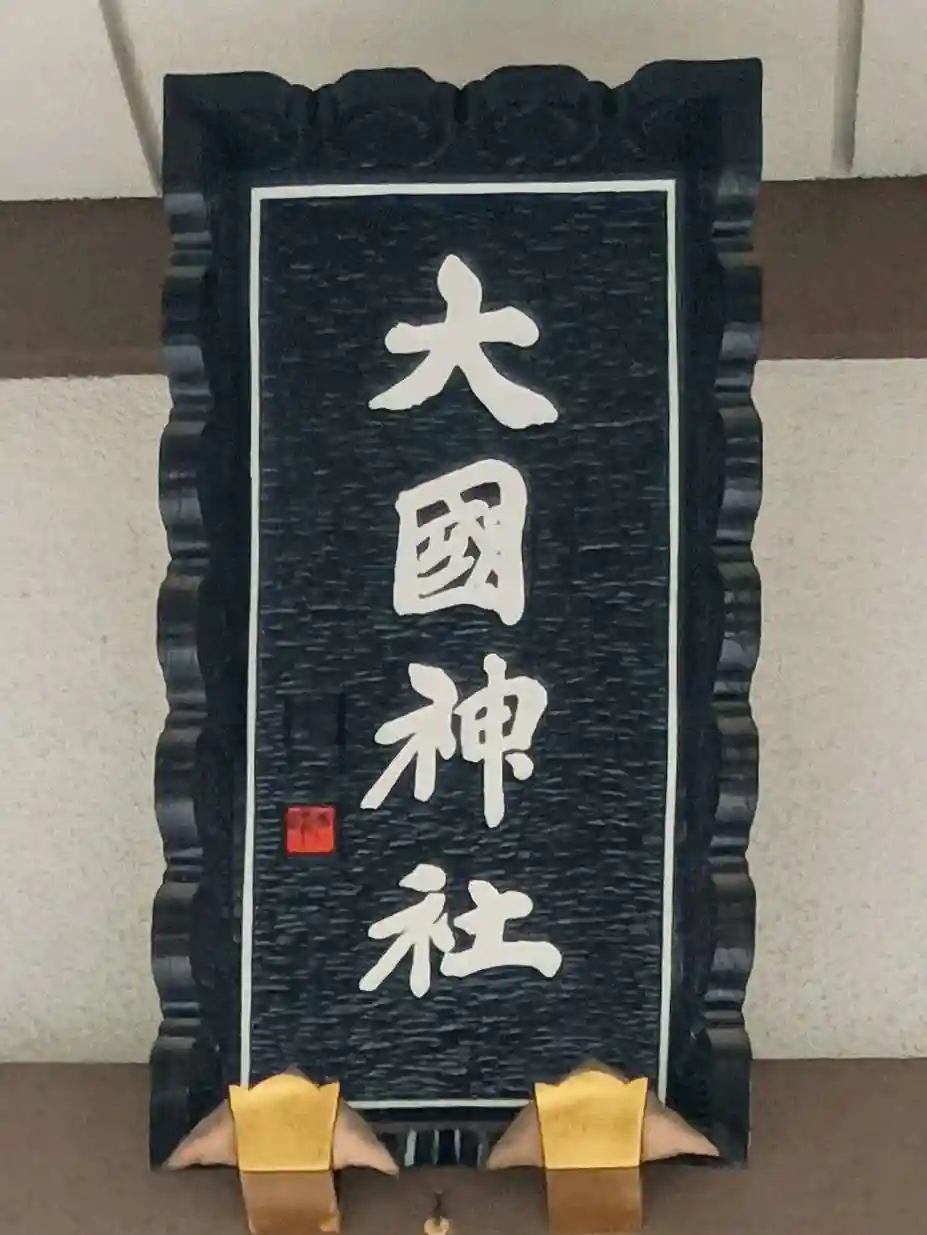 大國神社